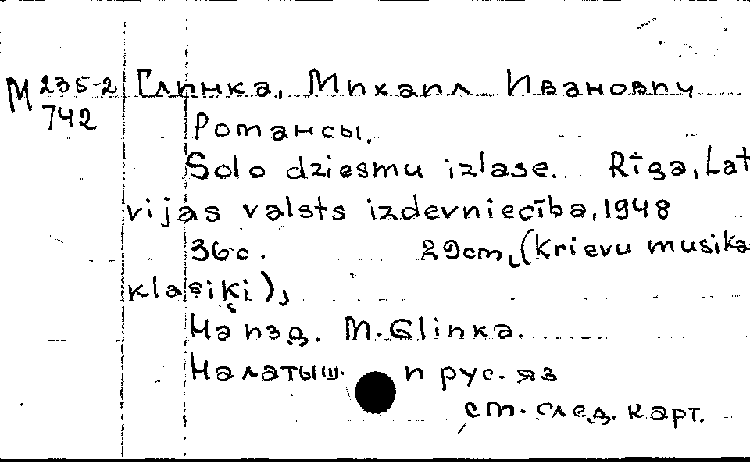 М 235-2 Глинка, Михаил Иванович
742
Романсы.
Solo dziesmu izlase. Rīga, Lat
vijas valsts izdevniecība, 1948
36 с. 29cm, (krievu musika
klasiķi),
На изд. M. Glinka.
На латыш. и рус. яз
см. след. карт.